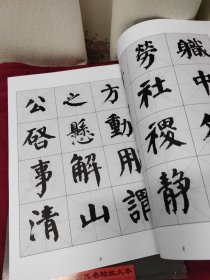 職中
勞社稷靜
方動用謂
之懸解山
公啓事清
代名帖放大本